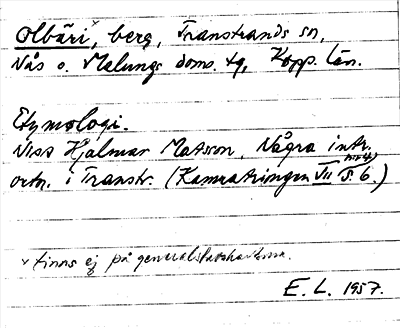 Olbäri×, berg, Transtrands sn,
Nås o. Malungs doms. tg, Kopp. län.
Etymologi.
Viss Hjalmar Matsson, Några intr.
ortn. i Transtr. (Kamratringen VII nr 4, s. 6.)
× finns ej på generalstabskartorna.
E. L. 1957.